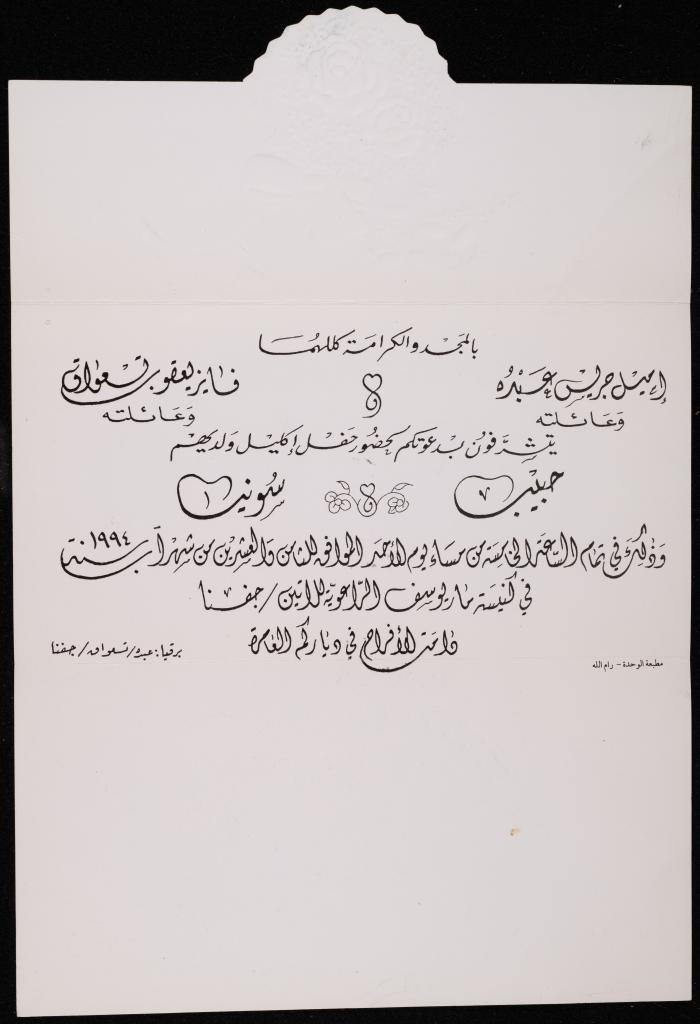 بالمجد والكرامة كللهما
إميل جريس عبده
وعائلته
فايز يعقوب تسعواق
وعائلته
يتشرفون بدعوتكم لحضور حفل إكليل ولديهم
حبيب
سونيا
وذلك في تمام الساعة الخامسة من مساء يوم الأحد الموافق للثامن والعشرين من شهر آب سنة ١٩٩٤
في كنيسة مار يوسف الراعوية للاتين / جفنا
دامت الأفراح في دياركم العامرة
برقيا: عبده / / جفنا
مطبعة الوحدة - رام الله